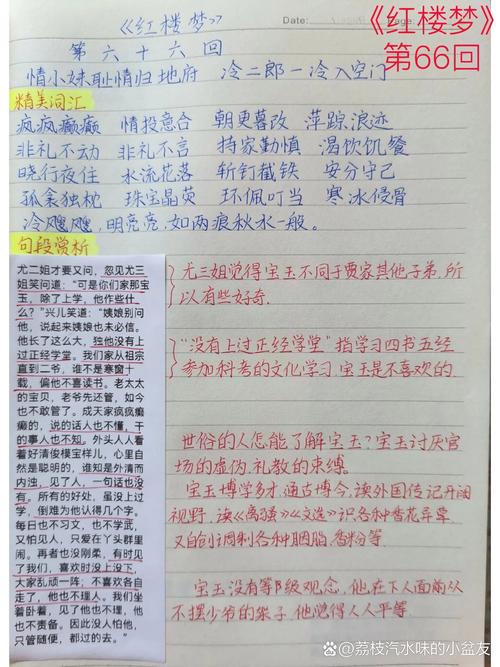 《红楼梦》
Date:
Page:
《红楼梦》
第66回
第六十六回
情小妹耻情归地府 冷二郎一冷入空门
精美词汇
疯疯癫癫 情投意合 朝更暮改 萍踪浪迹
非礼不动 非礼不言 持家勤慎 渴饮饥餐
晓行夜住 水流花落 斩钉截铁 安分守己
孤衾独枕 珠宝晶荧 环佩叮当 寒冰侵骨
冷飕飕,明亮亮,如两痕秋水一般。
句段赏析
尤二姐才要又问,忽见尤三
姐笑问道:“可是你们家那宝
玉,除了上学,他作些什
么?”兴儿笑道:“姨娘别问
他,说起来姨娘也未必信。
他长了这么大,独他没有上
过正经学堂。我们家从祖宗
直到二爷,谁不是寒窗十
载,偏他不喜读书。老太太
的宝贝,老爷先还管,如今
也不敢管了。成天家疯疯癫
癫的,说的话人也不懂,干
的事人也不知。外头人人看
着好清俊模样儿,心里自
然是聪明的,谁知是外清而
内浊,见了人,一句话也没
有。所有的好处,虽没上过
学,倒难为他认得几个字。
每日也不习文,也不学武,
又怕见人,只爱在丫头群里
闹。再者也没刚柔,有时见
了我们,喜欢时没上没下,
大家乱顽一阵,不喜欢各自
走了,他也不理人。我们坐
着卧着,见了他也不理,他
也不责备。因此没人怕他,
只管随便,都过的去。”
尤三姐觉得宝玉不同于贾家其他子弟,所
以有些好奇。
“没有上过正经学堂”指学习四书五经
参加科考的文化学习,宝玉是不喜欢的
世俗的人怎能了解宝玉?宝玉讨厌官
场的虚伪,礼教的束缚
宝玉博学多才,通古博今,读外国传记开阔
视野,读《离骚》《文选》识各种香花异草
又自创调制各种胭脂、香粉等
宝玉没有等级观念,他在下人面前从
不摆少爷的架子,他觉得人人平等
@荔枝汽水味的小盆友